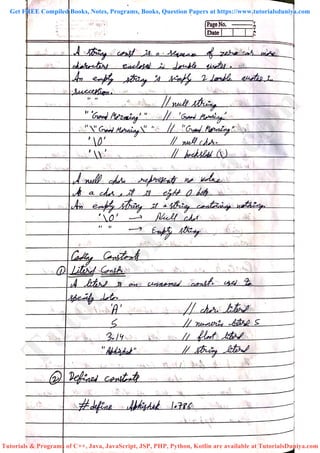 Get FREE Compiled Books, Notes, Programs, Books, Question Papers at https://www.tutorialsduniya.com
Page No.
Date
A string const is a sequence of zero or more
characters enclosed in double quotes.
An empty string is simply 2 double quotes in
succession.
" " // null string
"Good Morning" // Good Morning
"\"Good Morning\"" // "Good Morning"
'\0' // null char.
'\\' // backslash (\)
A null char represents no value.
As a char, it is eight 0 bits.
An empty string is a string containing nothing.
'\0' → Null char
" " → Empty string
Coding Constants
① Literal Const
A literal is an unnamed const. used to
specify data.
'A' // char literal
5 // numeric literal 5
3.14 // float literal
"Abhishek" // string literal
② Defined constants
#define Abhishek 1.786
Tutorials & Programs of C++, Java, JavaScript, JSP, PHP, Python, Kotlin are available at TutorialsDuniya.com